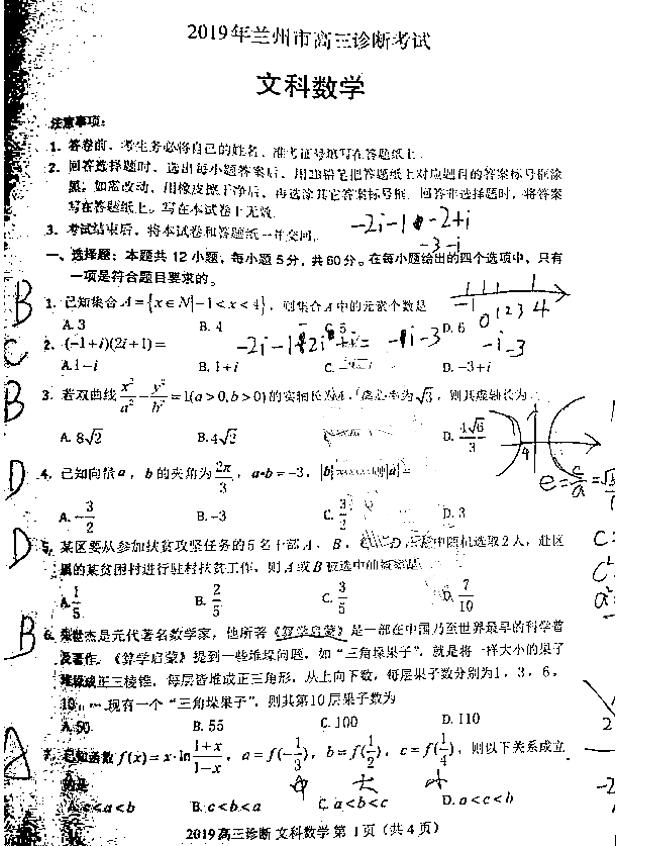 2019年兰州市高三诊断考试
文科数学
注意事项:
1. 答卷前,考生务必将自己的姓名、准考证号填写在答题纸上.
2. 回答选择题时,选出每小题答案后,用2B铅笔把答题纸上对应题目的答案标号框涂
黑,如需改动,用橡皮擦干净后,再选涂其它答案标号框.回答非选择题时,将答案
写在答题纸上。写在本试卷上无效.
3. 考试结束后,将本试卷和答题纸一并交回.
-2i-1 -2+i
-3-i
一、选择题:本题共 12 小题,每小题 5 分,共 60 分。在每小题给出的四个选项中,只有
一项是符合题目要求的。
B 1. 已知集合 A={x∈N|-1<x<4},则集合A中的元素个数是
-1 0 1 2 3 4
A. 3 B. 4 C. 5 D. 6
C 2. (-1+i)(2i+1)= -2i-1+2i²+i= -i-3 -i-3
A. 1-i B. 1+i C. D. -3+i
B 3. 若双曲线 x²/a² - y²/b² =1(a>0,b>0)的实轴长为4,离心率为√3,则其虚轴长为
A. 8√2 B. 4√2 D. 4√6/3
4
e=c/a=√3
D 4. 已知向量a,b的夹角为2π/3,a•b=-3,|b| 则|a|=
A. -3/2 B. -3 C. 3/2 D. 3
D 5. 某区要从参加扶贫攻坚任务的5名干部A,B,C,D 中随机选取2人,赴区
属的某贫困村进行驻村扶贫工作,则A或B被选中的概率是
A. 1/5 B. 2/5 C. 3/5 D. 7/10
c=
c²
a²=
B 6. 朱世杰是元代著名数学家,他所著《算学启蒙》是一部在中国乃至世界最早的科学普
及著作.《算学启蒙》提到一些堆垛问题,如“三角垛果子”,就是将一样大小的果子
堆垛成正三棱锥,每层皆堆成正三角形,从上向下数,每层果子数分别为1,3,6,
10,….现有一个“三角垛果子”,则其第10层果子数为
A. 50 B. 55 C. 100 D. 110
2
A 7. 已知函数 f(x)=x·ln (1+x)/(1-x),a=f(-1/3),b=f(1/2),c=f(1/4),则以下关系成立
的是 中 大 小
-2
A. c<a<b B. c<b<a C. a<b<c D. a<c<b
2019高三诊断 文科数学 第 1页(共4页)